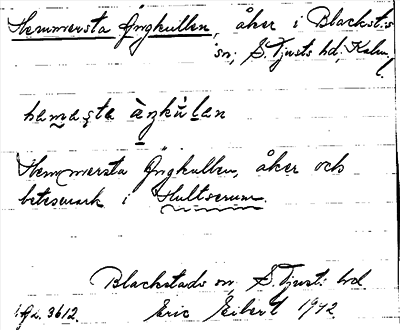 Hemmersta Ängkullen, åker i Blackstads
sn, S. Tjusts hd, Kalm.
l.
hamasta àŋkùlan
Hemmersta Ängkullen, åker och
betesmark i Hultserum.
Blackstads sn, S. Tjusts hd.
Eric Eibert 1942.
3612.